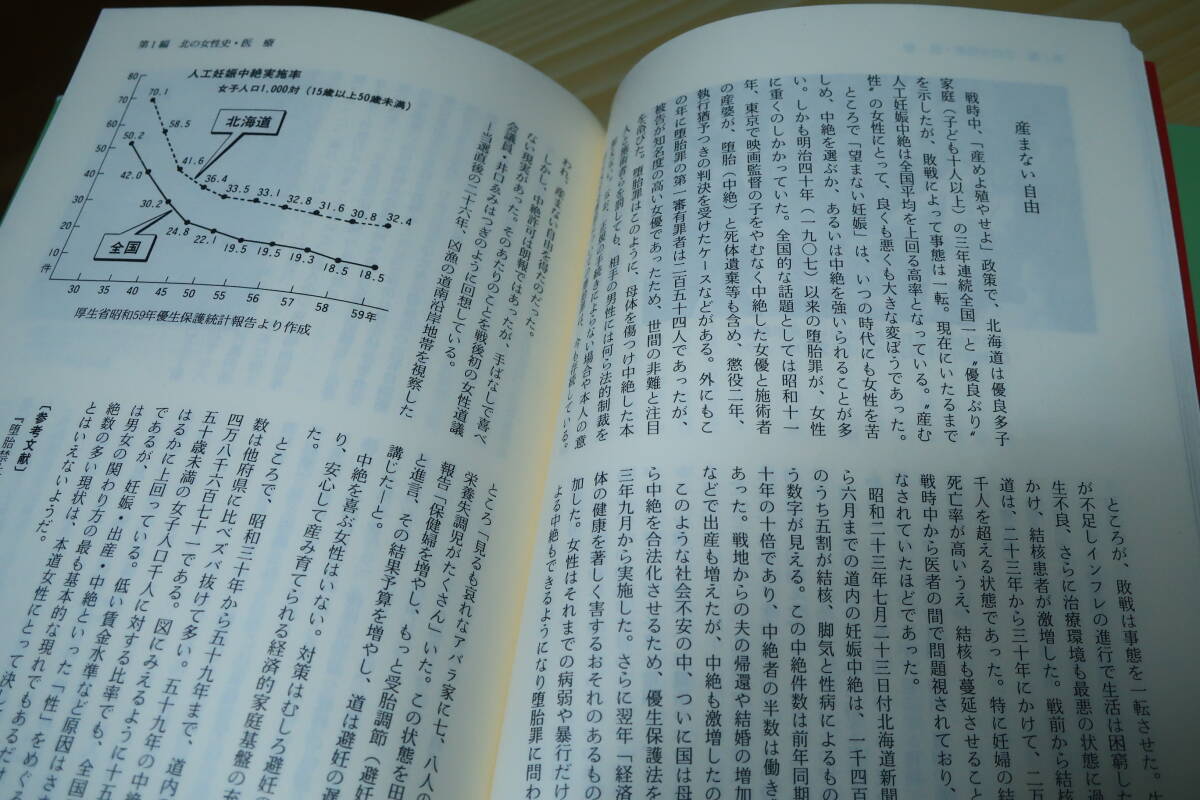 産まない自由
戦時中、「産めよ殖やせよ」政策で、北海道は優良多子
家庭（子ども十人以上）の三年連続全国一と〝優良ぶり〟
を示したが、敗戦によって事態は一転。現在にいたるまで
人工妊娠中絶は全国平均を上回る高率となっている。〝産む
性〟の女性にとって、良くも悪くも大きな変ぼうであった。
ところで「望まない妊娠」は、いつの時代にも女性を苦
しめ、中絶を選ぶか、あるいは中絶を強いられることが多
い。しかも明治四十年（一九〇七）以来の堕胎罪が、女性
に重くのしかかっていた。全国的な話題としては昭和十一
年、東京で映画監督の子をやむなく中絶した女優と施術者
の産婆が、堕胎（中絶）と死体遺棄等も含め、懲役二年、
執行猶予つきの判決を受けたケースなどがある。外にもこ
の年に堕胎罪の第一審有罪者は二百五十四人であったが、
被告が知名度の高い女優であったため、世間の非難と注目
を浴びた。堕胎罪はこのように、母体を傷つけ中絶した本
人と施術者らを罰しても、相手の男性には何ら法的制裁を
正規の手続きによらない場合や本人の意
今も存続している。
ところが、敗戦は事態を一転させた。
が不足しインフレの進行で生活は困窮した
生不良、さらに治療環境も最悪の状態に過
かけ、結核患者が激増した。戦前から結核
道は、二十三年から三十年にかけて、二万
千人を超える状態であった。特に妊婦の結
死亡率が高いうえ、結核も蔓延させること
戦時中から医者の間で問題視されており、
なされていたほどであった。
昭和二十三年七月二十三日付北海道新聞
ら六月までの道内の妊娠中絶は、一千四百
のうち五割が結核、脚気と性病によるもの
う数字が見える。この中絶件数は前年同期
十年の十倍であり、中絶者の半数は働き
あった。戦地からの夫の帰還や結婚の増加
などで出産も増えたが、中絶も激増したの
このような社会不安の中、ついに国は母
ら中絶を合法化させるため、優生保護法を
三年九月から実施した。さらに翌年「経済
体の健康を著しく害するおそれのあるもの
加した。女性はそれまでの病弱や暴行だけ
よる中絶もできるようになり堕胎罪に問わ
第1編 北の女性史・医 療
人工妊娠中絶実施率
女子人口1,000対（15歳以上50歳未満）
80
70
60
50
40
30
20
10
件
70.1
58.5
41.6
36.4
33.5
33.1
32.8
31.6
30.8
32.4
北海道
50.2
42.0
30.2
24.8
22.1
19.5
19.5
19.3
18.5
18.5
全国
30 35 40 45 50 55 56 57 58 59年
厚生省昭和59年優生保護統計報告より作成
われ、産まない自由を得たのだった。
しかし、中絶許可は朗報ではあったが、手ばなしで喜べ
ない現実があった。そのあたりのことを戦後初の女性道議
会議員・井口ゑみはつぎのように回想している。
―当選直後の二十六年、凶漁の道南沿岸地帯を視察した
ところ「見るも哀れなアバラ家に七、八人の
栄養失調児がたくさん」いた。この状態を田
報告「保健婦を増やし、もっと受胎調節（避妊
と進言、その結果予算を増やし、道は避妊の運
講じた―と。
中絶を喜ぶ女性はいない。対策はむしろ避妊の
り、安心して産み育てられる経済的家庭基盤の充
た。
ところで、昭和三十年から五十九年まで、道内の
数は他府県に比べズバ抜けて多い。五十九年の中絶
四万八千六百七十一である。図にみえるように十五
五十歳未満の女子人口千人に対する比率でも、全国
はるかに上回っている。低い賃金水準など原因はさ
であるが、妊娠・出産・中絶といった「性」をめぐる
は男女の関わり方の最も基本的な現れでもあるだけ
絶数の多い現状は、本道女性にとって決して
とはいえないようだ。
〔参考文献〕